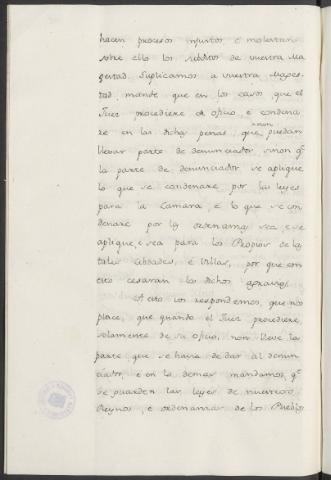 hacen procesos injustos é molestan
sobre ello los subditos de vuestra Ma
gestad. Suplicamos a vuestra Mages-
tad, mande que en los casos que el
Juez procediere de oficio, e condena
re en las dichas penas, que ^non puedan
llevar parte de denunciador, sinon qe.
la parte de denunciador se aplique
lo que se condenare por las leyes
para la Camara, e lo que se con
denare por las ordenanzas sea, e se
aplique, e sea para los Propios de las
tales cibdades, é villas, por que con
esto cesaran los dichos agravios.
A esto vos respondemos, que nos
place, que quando el Juez procediere
solamente de su oficio, non lleve la
parte que se havia de dar al denun
ciador, e en lo demas mandamos, qe.
se guarden las leyes de nuestros
Reynos, e ordenanzas de los Pueblos